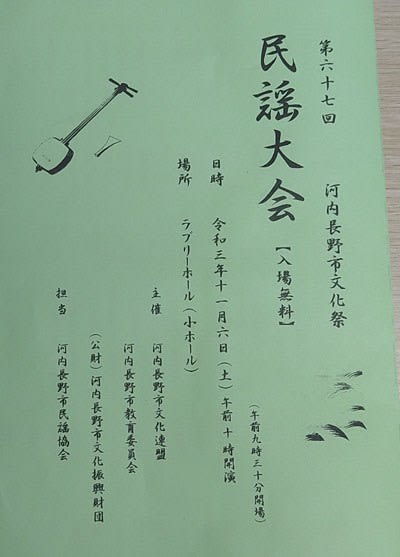 第六十七回 河内長野市文化祭
民謡大会【入場無料】
(午前九時三十分開場)
日時 令和三年十一月六日(土)午前十時開演
場所 ラブリーホール(小ホール)
主催 河内長野市文化連盟
河内長野市教育委員会
(公財)河内長野市文化振興財団
担当 河内長野市民謡協会